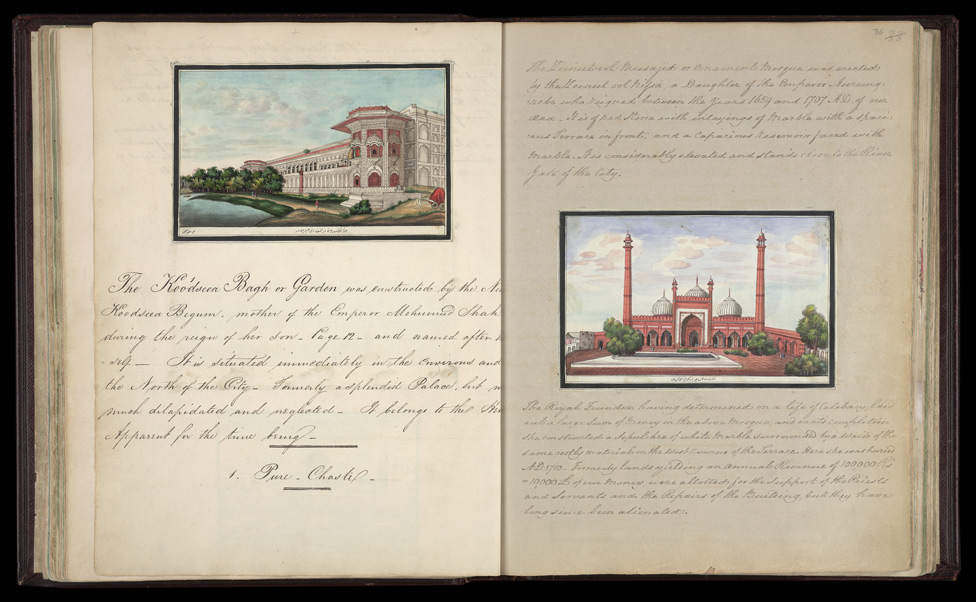 The Koódseea Bagh or Garden was constructed by the
Koodseea Begum, mother of the Emperor Mohumud Shah
during the reign of her son - Page 12 - and named after
self — It is situated immediately in the environs and
the North of the City - Formerly a splendid Palace, but
much dilapidated and neglected - It belongs to the
Apparent for the time being -
1. Pure - Chaste -
36 33
The Musajid or Ornamental Mosque was erected
by the Zeenut ool Nissa, a Daughter of the Emperor Aurung-
zebe who reigned between the Years 1659 and 1707 A.D. of our
It is of red Stone with inlayings of Marble with a spaci-
ous Terrace in front, and a Capacious Reservoir faced with
Marble. It is considerably elevated and stands close to the River
Gate of the City.
The Royal Foundress having determined on a life of Celebacy, laid
out a large Sum of Money in the above Mosque, and on its completion
She constructed a Sepulchre of white Marble surrounded by a of the
same costly material on the West Corner of the Terrace. Here she was buried
A.D. 1710. Formerly lands yielding an annual Revenue of
of our Money, were allotted for the Support of the Priests
and Servants and the Repairs of the Building, but they have
long since been alienated.